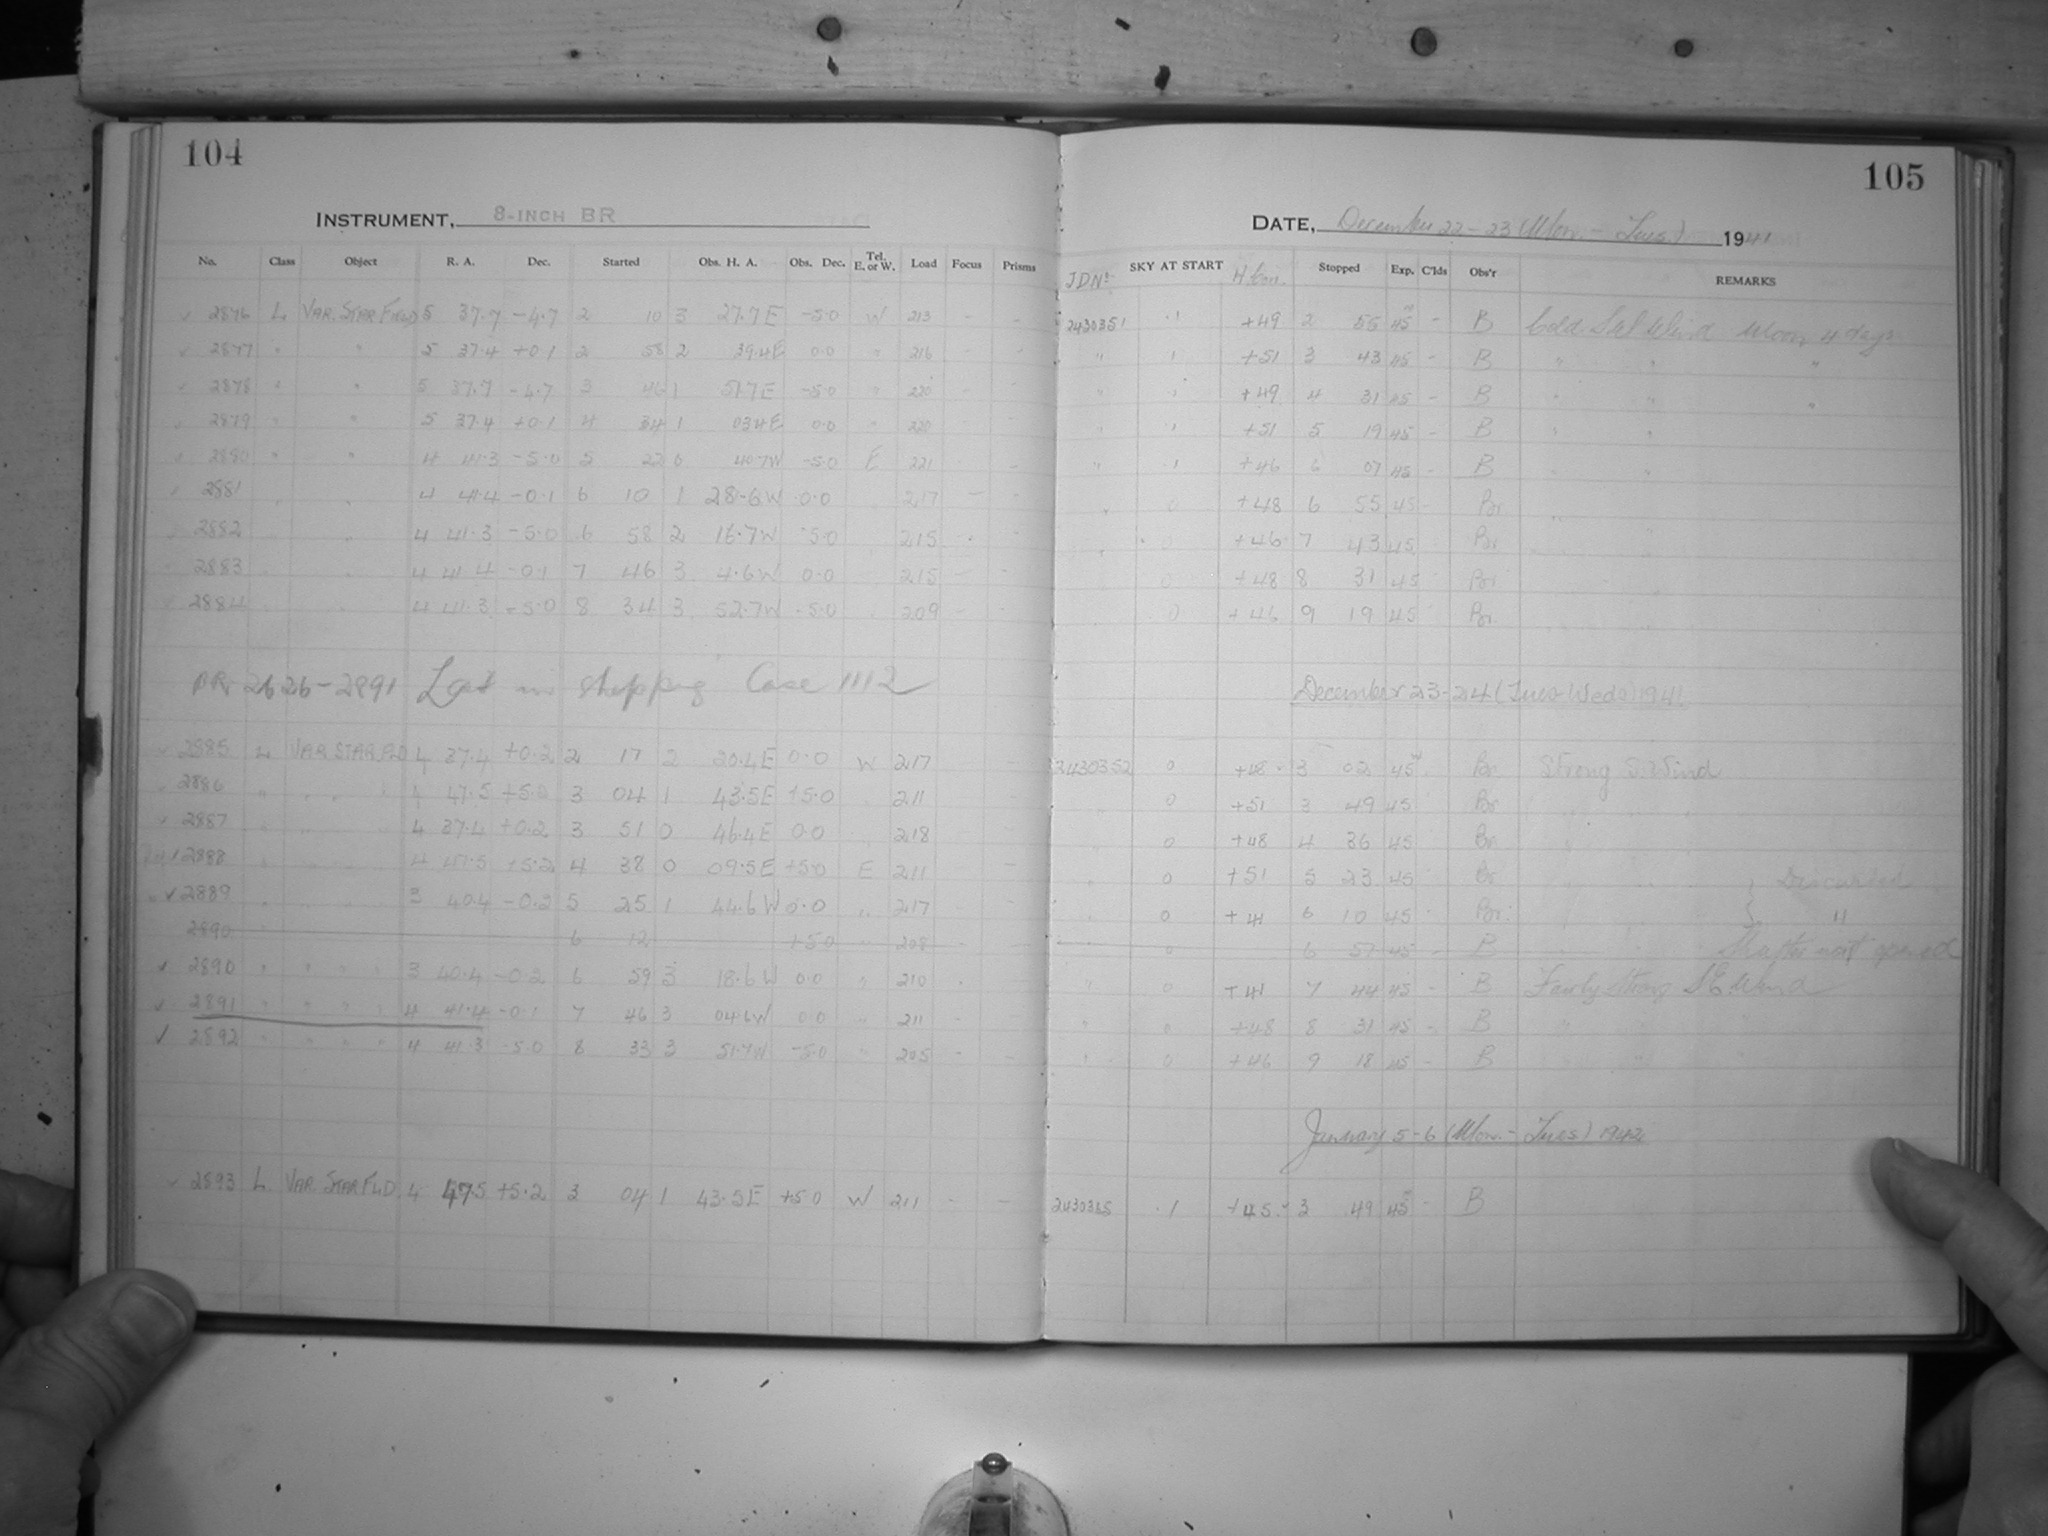 104
INSTRUMENT, 8-INCH BR
No. Class Object R. A. Dec. Started Obs. H. A. Obs. Dec. Tel. E. or W. Load Focus Prisms
2876 L VAR. STAR FIELD 5 37.7 -4.7 2 10 3 27.7E -5.0 W 213 - -
2877 " " 5 37.4 +0.1 2 58 2 39.4E 0.0 " 216 - -
2878 " " 5 37.7 -4.7 3 46 1 51.7E -5.0 " 220 - -
2879 " " 5 37.4 +0.1 4 34 1 03.4E 0.0 " 220 - -
2880 " " 4 41.3 -5.0 5 22 0 40.7W -5.0 E 221 - -
2881 " " 4 41.4 -0.1 6 10 1 28.6W 0.0 217 -
2882 " 4 41.3 -5.0 6 58 2 16.7W -5.0 215 -
2883 " 4 41.4 -0.1 7 46 3 4.6W 0.0 215 - -
2884 " 4 41.3 -5.0 8 34 3 52.7W -5.0 209 -
BR 2626-2891 Lost in shipping Case 1112
2885 L VAR. STAR FLD 4 37.4 +0.2 2 17 2 20.4E 0.0 W 217
2886 " " " " 4 47.5 +5.2 3 04 1 43.5E +5.0 " 211
2887 4 37.4 +0.2 3 51 0 46.4E 0.0 218
2888 4 47.5 +5.2 4 38 0 09.5E +5.0 E 211 -
2889 3 40.4 -0.2 5 25 1 44.6W 0.0 " 217 - -
2890 6 12 +5.0 " 208 -
2890 " " " " 3 40.4 -0.2 6 59 3 18.6W 0.0 " 210 -
2891 " " " " 4 41.4 -0.1 7 46 3 04.6W 0.0 " 211 -
2892 " " " " 4 41.3 -5.0 8 33 3 51.7W -5.0 " 205 - -
2893 L VAR. STAR FLD. 4 47.5 +5.2 3 04 1 43.5E +5.0 W 211 - -
105
DATE, December 22-23 (Mon. - Tues.) 1941
JDNo. SKY AT START Stopped Exp. C'lds Obs'r REMARKS
2430351 .1 +49 2 55 45m - B Cold SW Wind Moon 4 days
" 1 +51 3 43 45 - B " " "
" 1 +49 4 31 45 - B " " "
" 1 +51 5 19 45 - B " "
" .1 +46 6 07 45 - B " "
" 0 +48 6 55 45 - Br.
" 0 +46 7 43 45 Br.
0 +48 8 31 45 Br.
0 +46 9 19 45 Br.
December 23-24 (Tues-Weds) 1941
2430352 0 +48 3 02 45m Br. Strong S. Wind
" 0 +51 3 49 45 Br.
" 0 +48 4 36 45 Br.
" 0 +51 5 23 45 Br Discarded
" 0 +41 6 10 45 Br. "
0 6 57 45 - B Shutter not opened
" 0 +41 7 44 45 - B Fairly strong S.E. Wind
" 0 +48 8 31 45 - B " " "
" 0 +46 9 18 45 - B " " "
January 5-6 (Mon. - Tues) 1942
2430365 .1 +45 3 49 45m - B